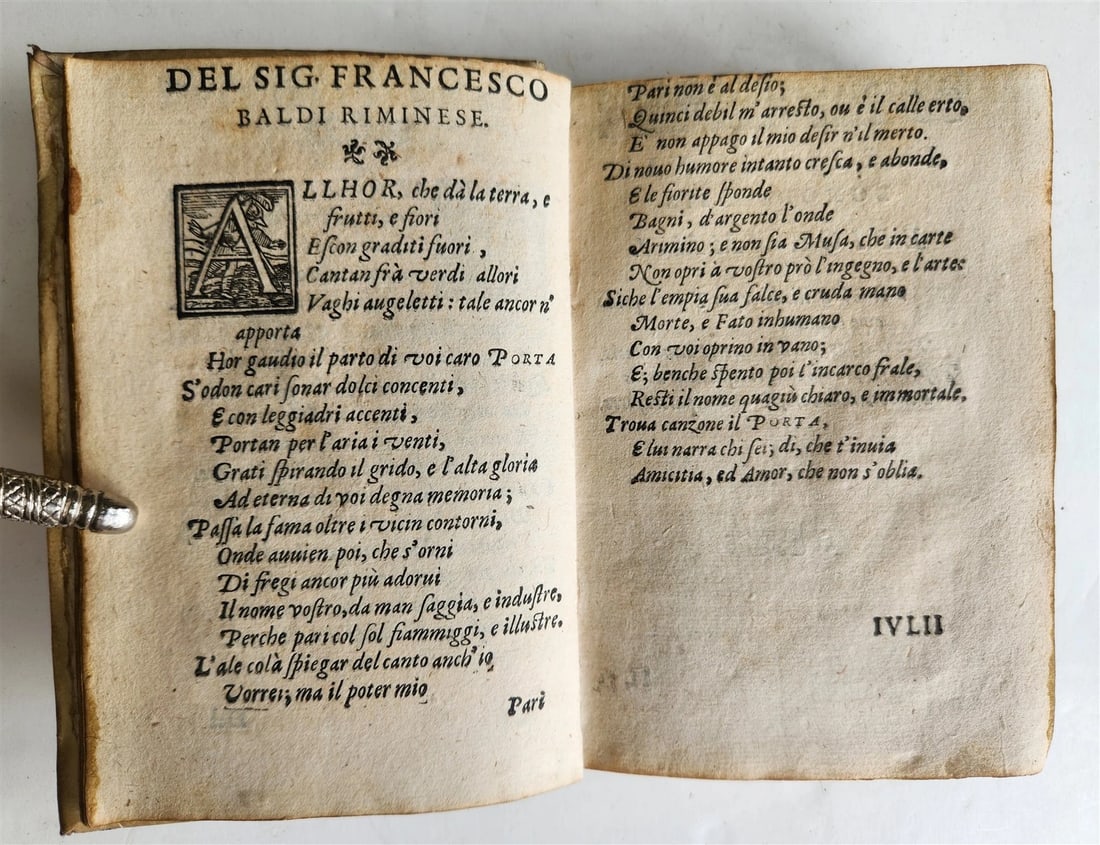 DEL SIG. FRANCESCO
BALDI RIMINESE.
ALLHOR, che dà la terra, e
frutti, e fiori
Eſcon graditi fuori,
Cantan frà verdi allori
Vaghi augeletti: tale ancor n'
apporta
Hor gaudio il parto di voi caro PORTA
S'odon cari ſonar dolci concenti,
E con leggiadri accenti,
Portan per l'aria i venti,
Grati ſpirando il grido, e l'alta gloria
Ad eterna di voi degna memoria;
Paſſa la fama oltre i vicin contorni,
Onde auuien poi, che s'orni
Di fregi ancor più adorui
Il nome voſtro, da man ſaggia, e induſtre,
Perche pari col ſol fiammiggi, e illuſtre.
L'ale colà ſpiegar del canto anch'io
Vorrei; ma il poter mio
Pari
Pari non è al deſio;
Quinci debil m'arreſto, ou è il calle erto,
E' non appago il mio deſir n'il merto.
Di nouo humore intanto creſca, e abonde,
E le fiorite ſponde
Bagni, d'argento l'onde
Arimino; e non ſia Muſa, che in carte
Non opri à voſtro prò l'ingegno, e l'arte:
Siche l'empia ſua falce, e cruda mano
Morte, e Fato inhumano
Con voi oprino in vano;
E; benche ſpento poi l'incarco frale,
Reſti il nome quagiù chiaro, e immortale.
Troua canzone il PORTA,
E lui narra chi ſei; di, che t'inuia
Amicitia, ed Amor, che non s'oblia.
IVLII